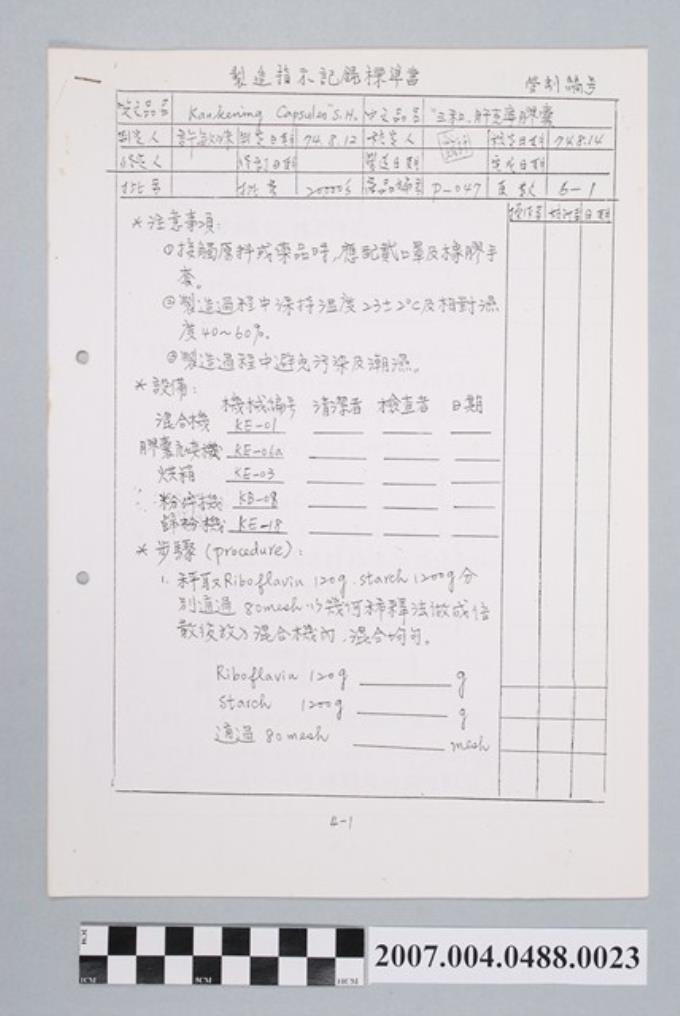 製造指示記錄標準書
管制編號
英文品名 Kankening Capsules "S.H. 中文品名 "三和. 肝克寧膠囊
制定人 制定日期 74.8.12 核定人 核定日期 74.8.14
修定人 修訂日期 製造日期 完成日期
批號 批量 20000's 產品編號 P-047 頁數 6-1
操作者 核對者 日期
*注意事項:
①接觸原料或藥品時,應配戴口罩及橡膠手
套。
②製造過程中保持溫度23±2°C及相對濕
度40~60%。
③製造過程中避免污染及潮濕。
*設備:
機械編號 清潔者 檢查者 日期
混合機 KE-01
膠囊充填機 KE-06a
烘箱 KE-03
粉碎機 KB-08
篩粉機 KE-18
*步驟(procedure):
1. 秤取Riboflavin 120g. starch 1200g分
別通過 80mesh以幾何稀釋法做成倍
散後放入混合機內,混合均勻。
Riboflavin 120g g
Starch 1200g g
通過 80mesh mesh
4-1
0CM 5CM 10CM
2007.004.0488.0023